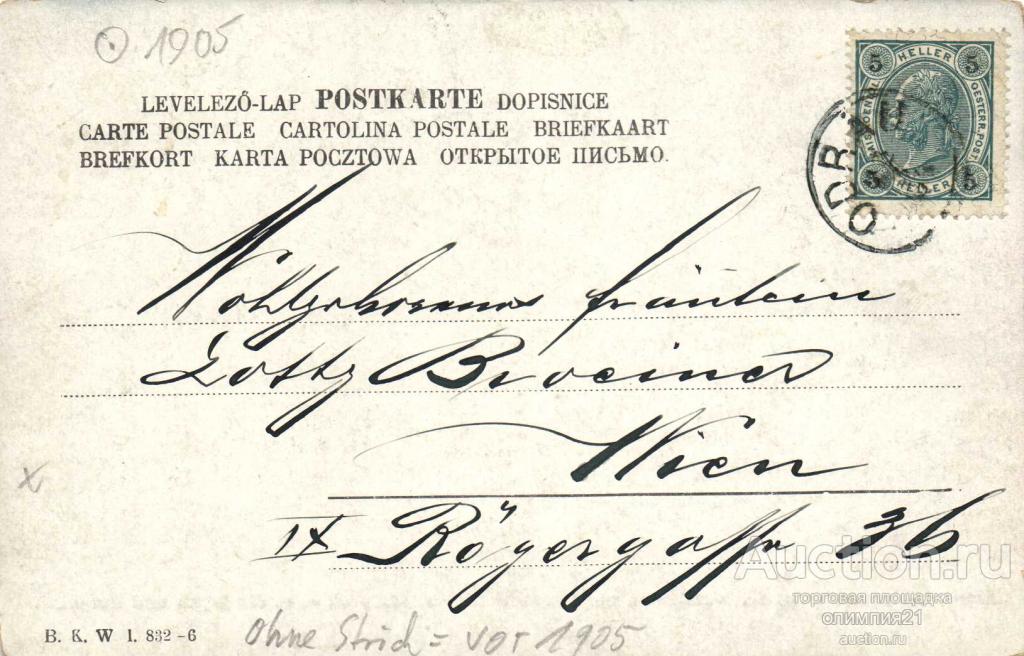 1905
LEVELEZŐ-LAP POSTKARTE DOPISNICE
CARTE POSTALE CARTOLINA POSTALE BRIEFKAART
BREFKORT KARTA POCZTOWA ОТКРЫТОЕ ПИСЬМО.
5 HELLER 5
OESTERR. POST
5 HELLER 5
ODRA
Wohlgeborenes Fräulein
Wien
IX Rögergasse 36
B. K. W I. 832-6
Ohne Strich = vor 1905
Auction.ru
торговая площадка
олимпия21
auction.ru